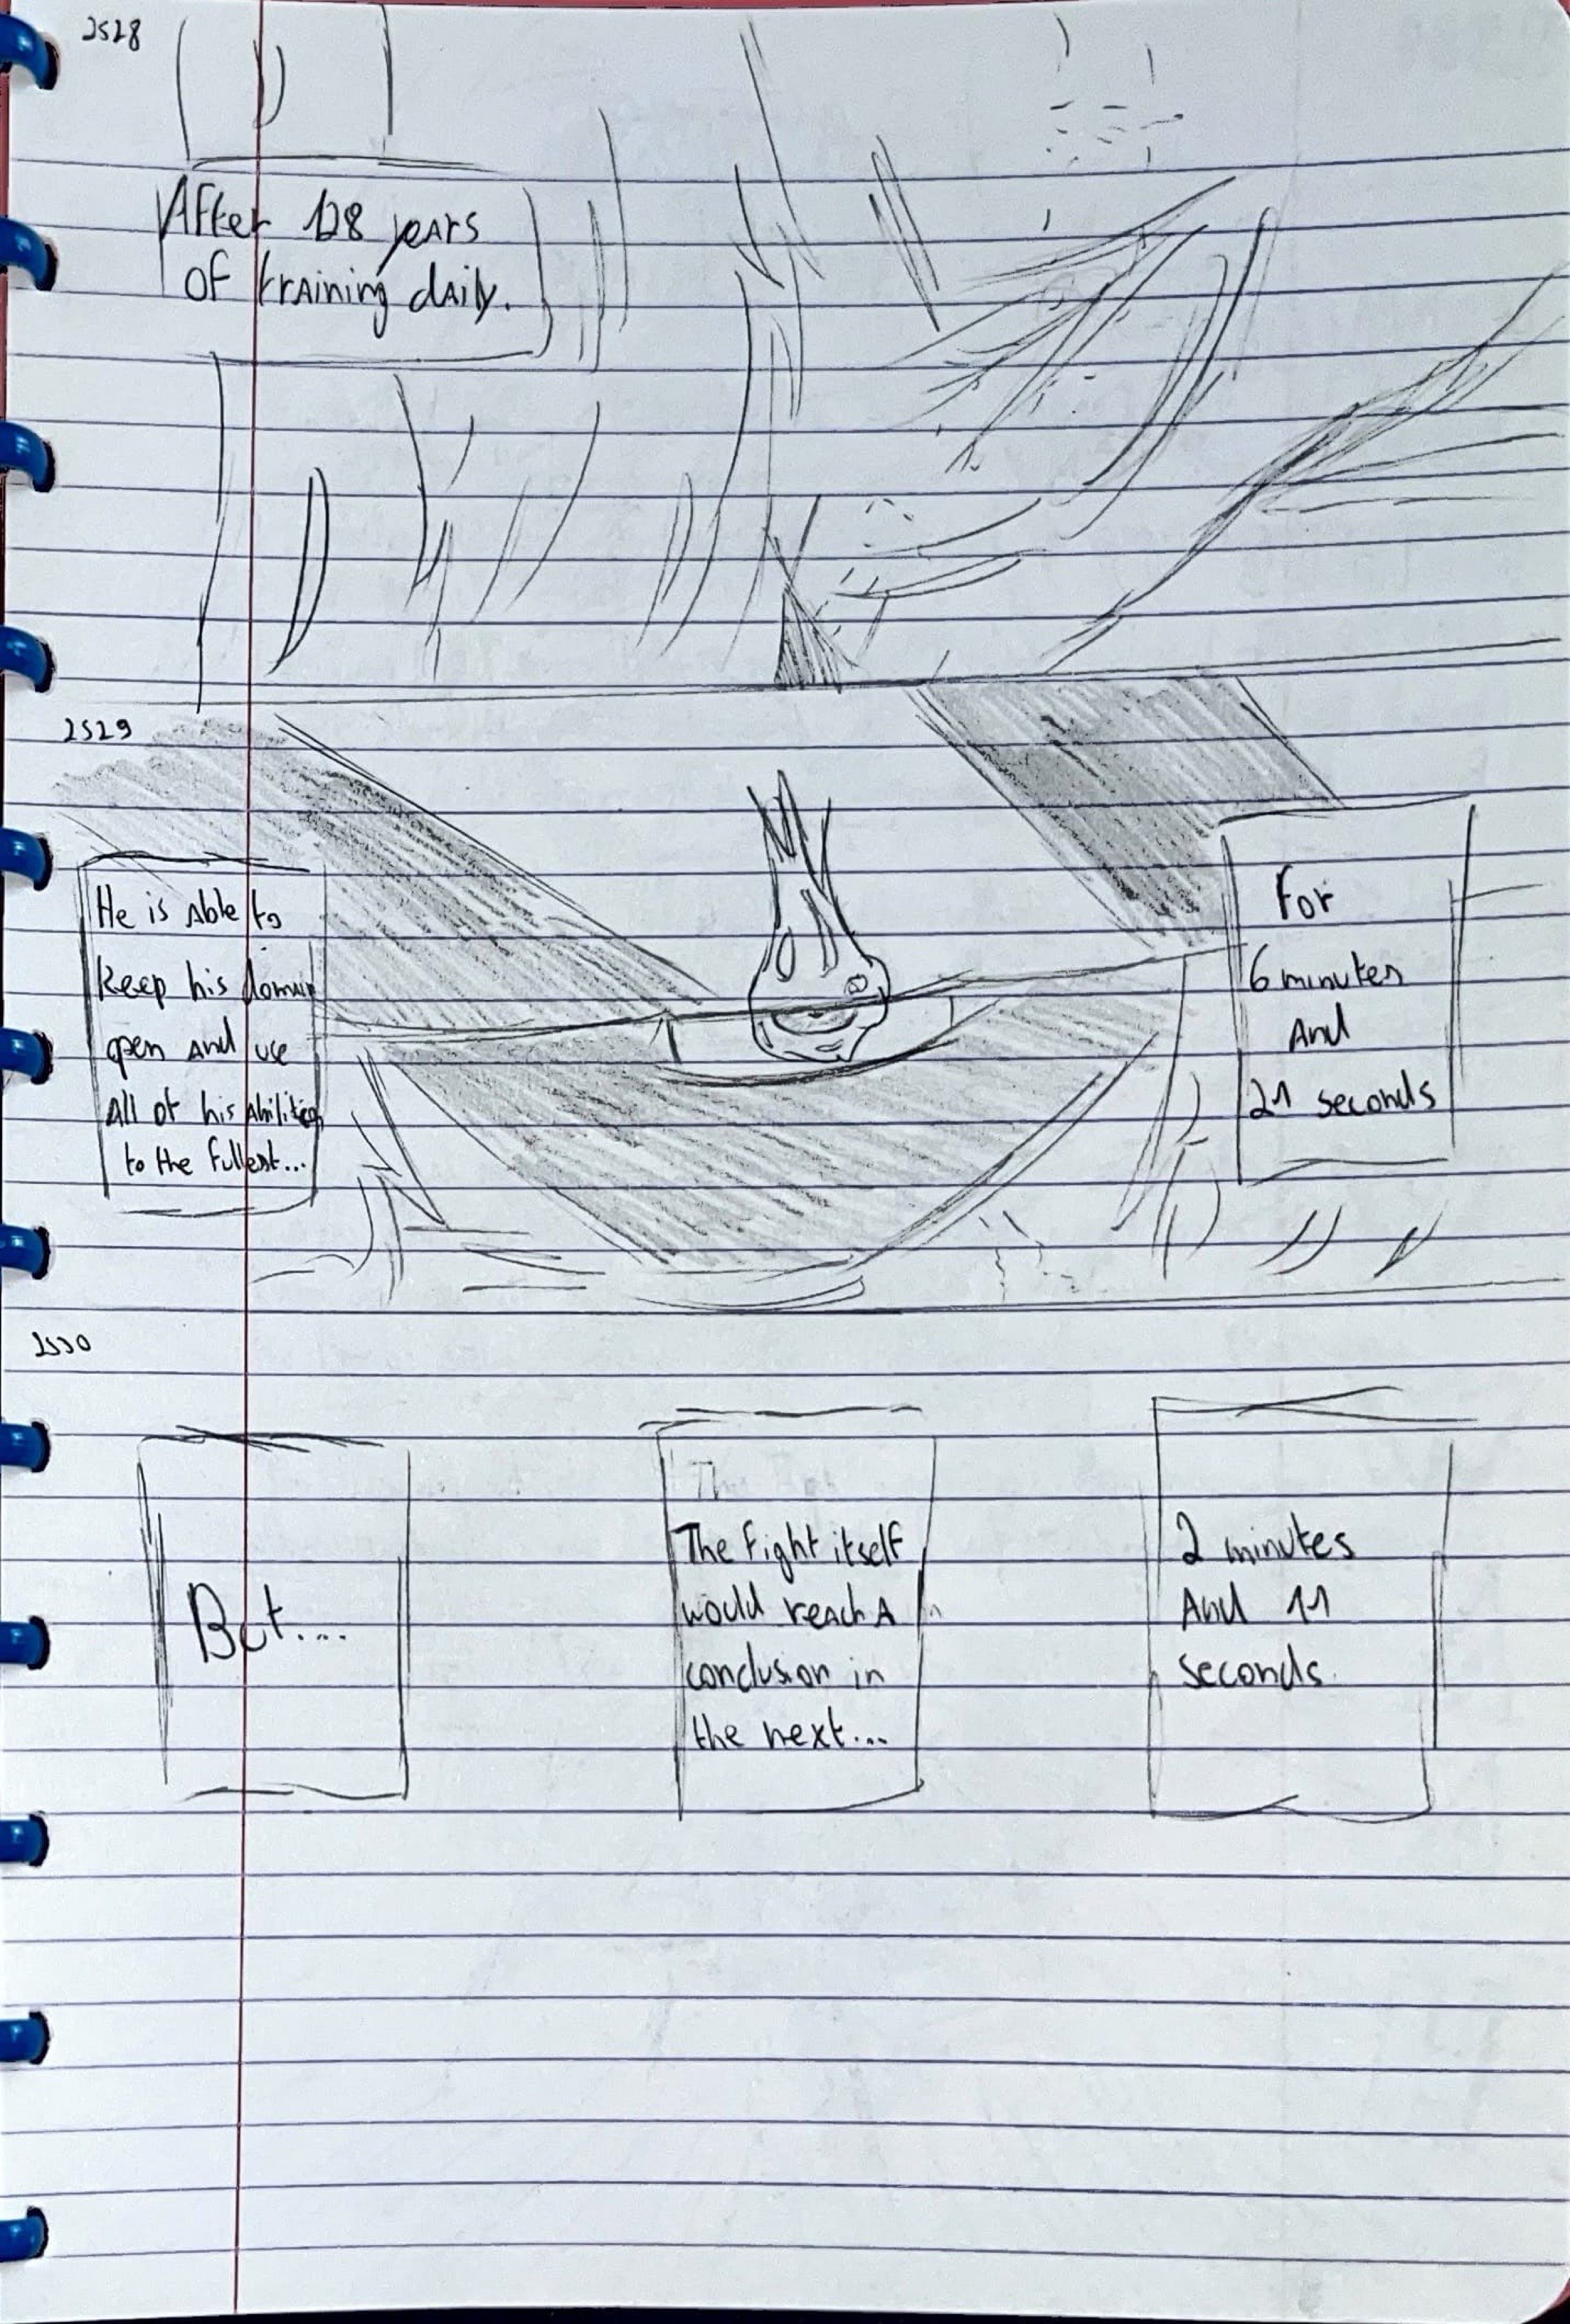 2528
After 128 years
of training daily.
2529
He is Able to
keep his domain
open and use
All of his Abilities
to the fullest...
For
6 minutes
And
21 seconds
2530
But....
Th
The fight itself
would reach A
conclusion in
the next...
2 minutes
And 11
seconds.